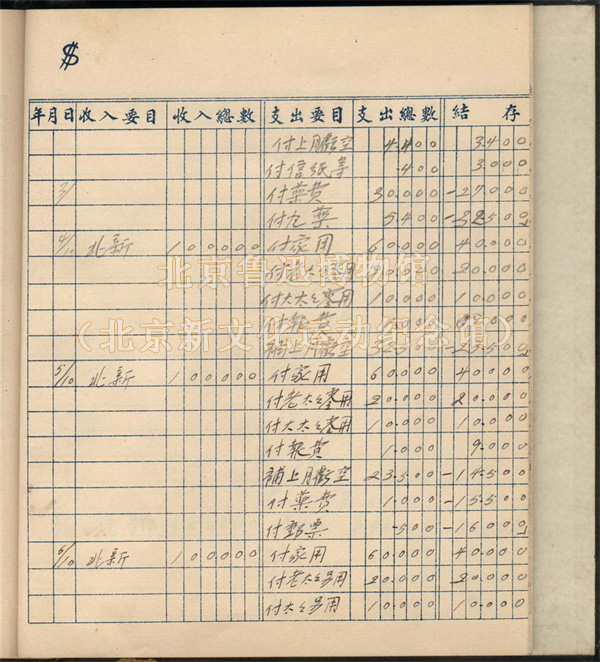 $
年月日 收入要目 收入總數 支出要目 支出總數 結存
付上月虧空 4.400 3.400
付信紙等 .400 3.000
3/ 付藥費 30.000 -27.000
付九藥 5.400 -32.500
4/10 北新 100.000 付家用 60.000 40.000
北京鲁迅博物馆
付老太太零用 20.000 20.000
付大太太零用 10.000 10.000
付報費
(北京新文化运动纪念馆)
補上月虧空
5/10 北新 100.000 付家用 60.000 40.000
付老太太零用 20.000 20.000
付大太太零用 10.000 10.000
付報費 1.000 9.000
補上月虧空 23.500 -14.500
付藥費 1.000 -15.500
付郵票 .500 -16.000
6/10 北新 100.000 付家用 60.000 40.000
付老太太另用 20.000 20.000
付太太另用 10.000 10.000